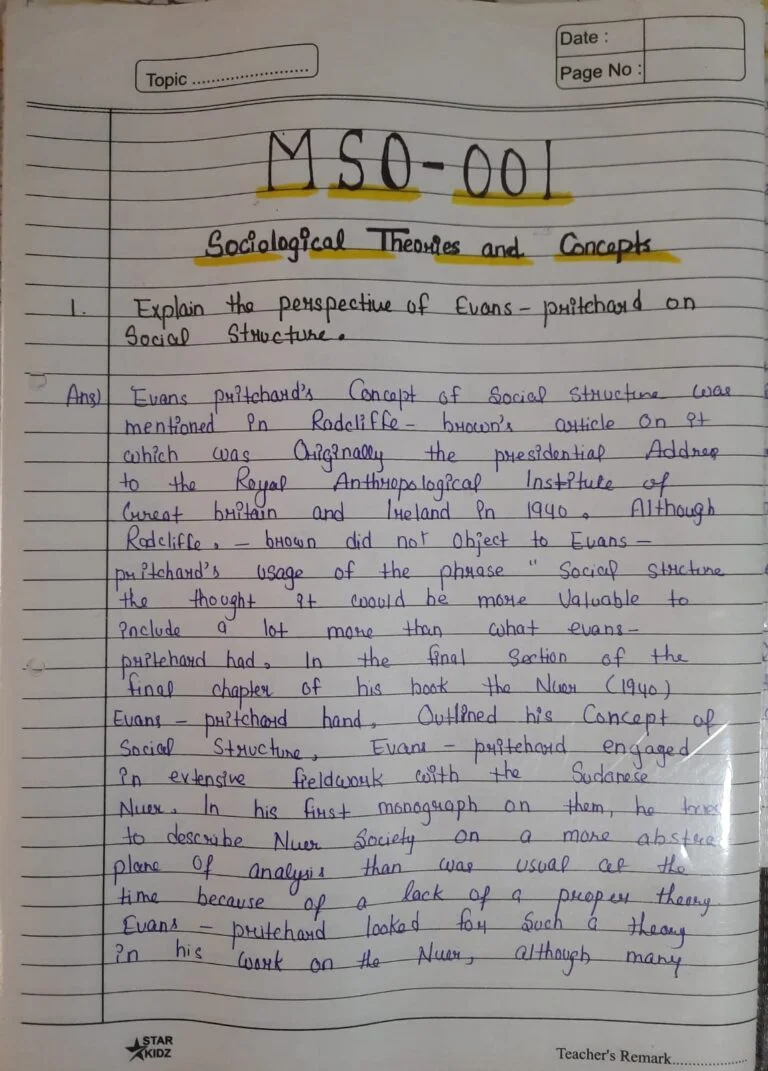 Topic ..............................
Date :
Page No :
MSO-001
Sociological Theories and Concepts
1. Explain the perspective of Evans - pritchard on
Social Structure.
Ans) Evans pritchard's Concept of Social Structure was
mentioned in Radcliffe - brown's article on it
which was Originally the presidential Address
to the Royal Anthropological Institute of
Great britain and Ireland in 1940. Although
Radcliffe, - brown did not Object to Evans -
pritchard's usage of the phrase " Social Structure
the thought it coould be more Valuable to
include a lot more than what evans -
pritchard had. In the final Section of the
final chapter of his book the Nuer (1940)
Evans - pritchard hand, Outlined his Concept of
Social Structure, Evans - pritchard engaged
in extensive fieldwork with the Sudanese
Nuer. In his first monograph on them, he
to describe Nuer Society on a more abstra
plane of analysis than was usual at the
time because of a lack of a proper theory
Evans - pritchard looked for Such a theory
in his work on the Nuer, although many
STAR
KIDZ
Teacher's Remark......................